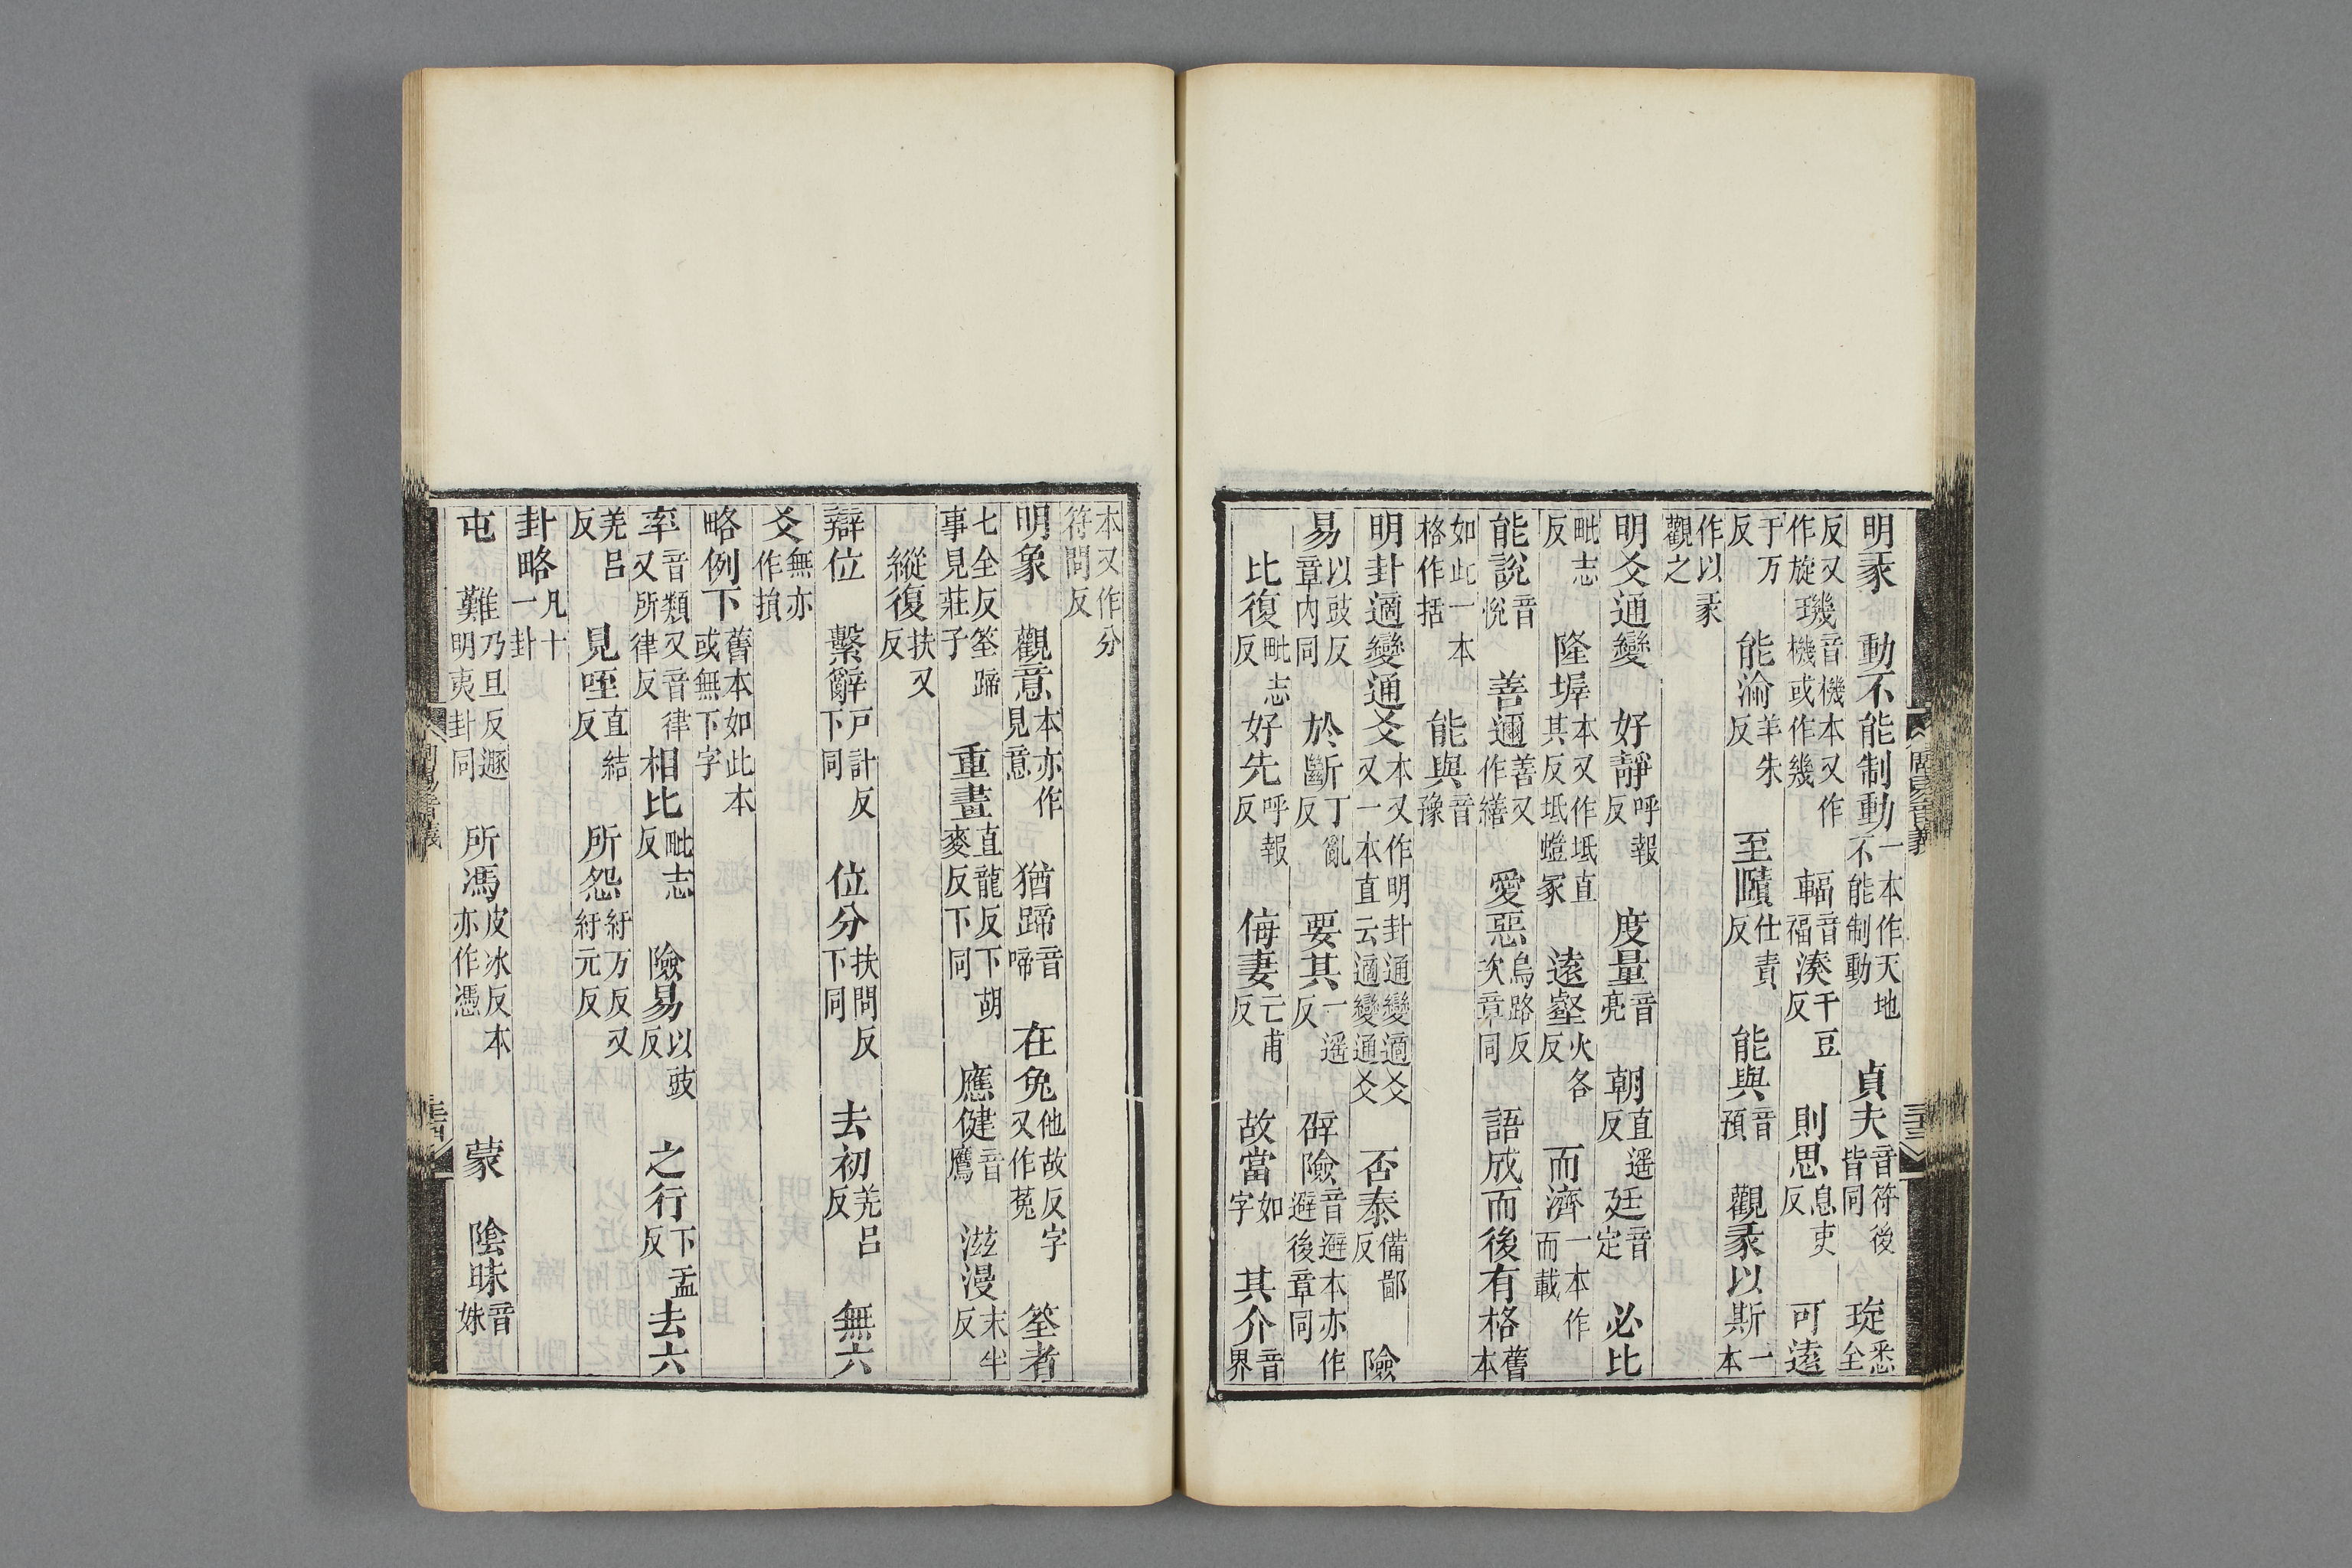 明彖 動不能制動一本作天地不能制動 貞夫音符後皆同 琁悉全
反又作旋璣音機本又作機或作幾 輻音福湊千豆反 則思息吏反 可遠
于万反 能渝羊朱反 至賾仕責反 能與音預 觀彖以斯一本
作以彖觀之
明爻通變 好靜呼報反 度量音亮 朝直遥反廷音定 必比
毗志反 隆墀本又作坻直其反坻螘冢 遠壑火各反 而濟一本作而載
能說音悅 善邇善又作繕 愛惡烏路反次章同 語成而後有格舊本
如此一本格作括 能與音豫
明卦適變通爻本又作明卦通變適爻又一本直云適變通爻 否泰備鄙反 險
易以豉反章内同 於斷丁亂反 要其一遥反 辟險音避本亦作避後章同
比復毗志反 好先呼報反 侮妻亡甫反 故當如字 其介音界
周易音義
三十三
本又作分符問反
明象 觀意本亦作見意 猶蹄音啼 在兔他故反字又作菟 筌者
七全反筌蹄事見莊子 重畫直龍反下胡麥反下同 應健音鷹 滋漫末半反
縱復扶又反
辯位 繫辭戸計反下同 位分扶問反下同 去初羌呂反 無六
爻無亦作損
略例下舊本如此本或無下字
率音類又音律又所律反 相比毗志反 險易以豉反 之行下孟反 去六
羌呂反 見咥直結反 所怨紆万反又紆元反
卦略凡十一卦
屯 難乃旦反遯明夷卦同 所馮皮冰反本亦作憑 蒙 陰昧音妹
周易音義
三十四